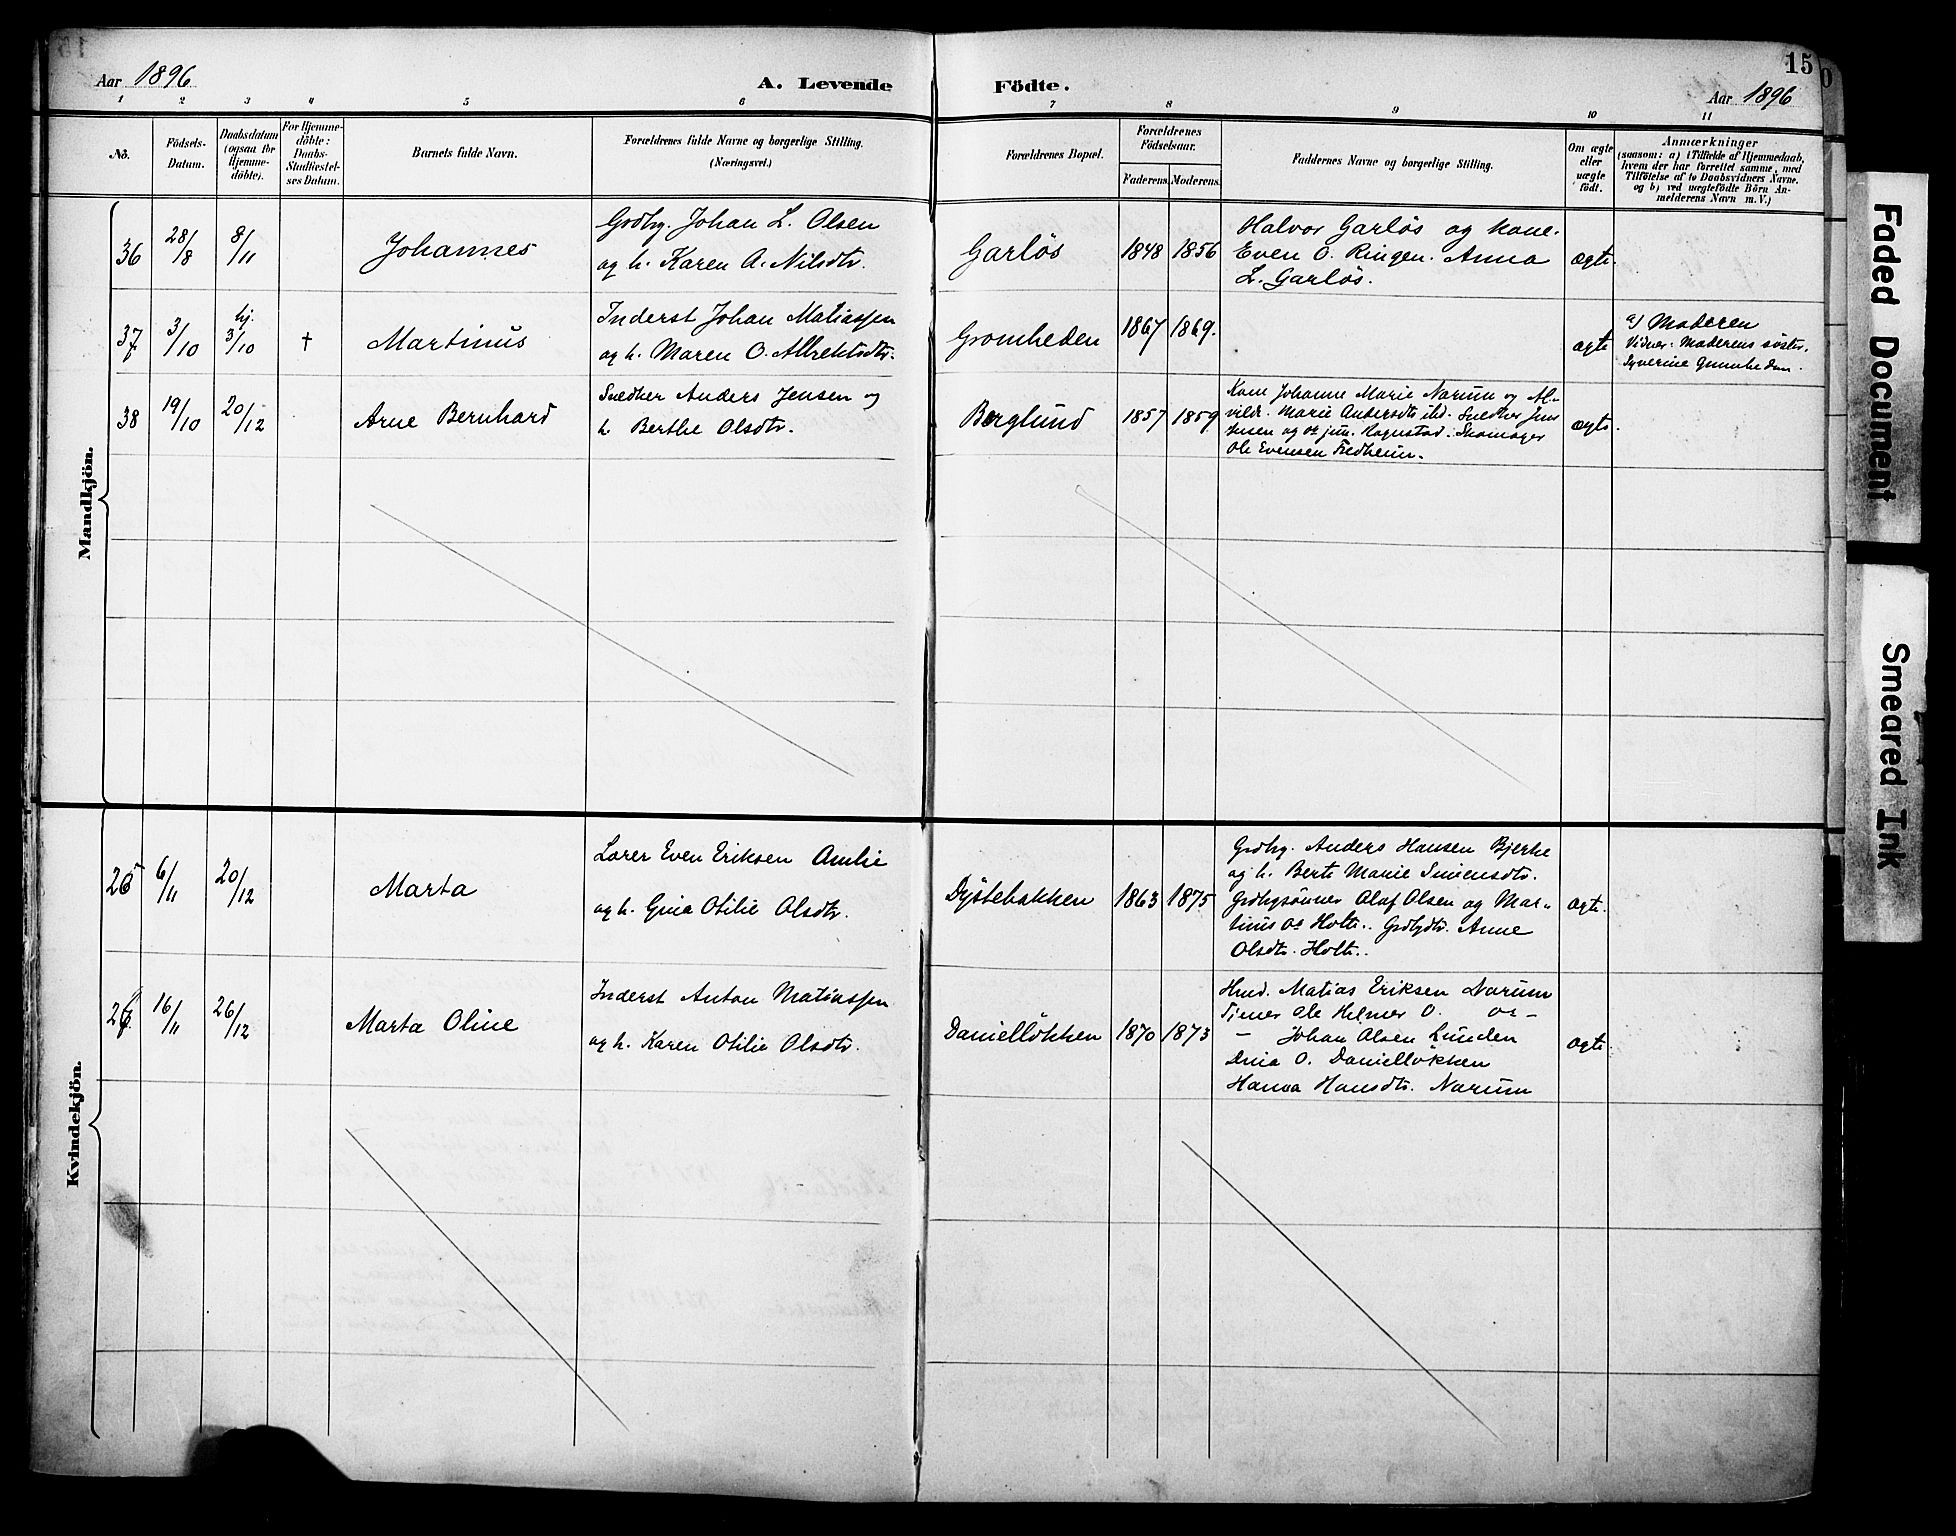 15
Aar 1896
A. Levende Födte.
Aar 1896
1 2 3 4 5 6 7 8 9 10 11
No.
Födsels-
Datum.
Daabsdatum
(ogsaa for
Hjemme-
döbte).
For Hjemme-
döbte:
Daabs-
Stadfæstel-
ses Datum.
Barnets fulde Navn.
Forældrenes fulde Navne og borgerlige Stilling.
(Næringsvei.)
Forældrenes Bopæl.
Forældrenes
Födselsaar.
Faderens. Moderens.
Faddernes Navne og borgerlige Stilling.
Om ægte
eller
uægte
födt.
Anmærkninger
(saasom: a) i Tilfælde af Hjemmedaab,
hvem der har forrettet samme, med
Tilföielse af to Daabsvidners Navne,
og b) ved uægtefödte Börn An-
melderens Navn m. V.)
Mandkjön.
36 28/8 8/11 Johannes
Grdbg. Johan L. Olsen
og h. Karen A. Nilsdtr.
Garløs 1848 1856
Halvor Garløs og kone.
Even O. Ringen. Anna
L. Garløs.
ægte.
37 3/10 hj. 3/10 † Martinus
Inderst Johan Matiassen
og h. Maren O. Albrektsdtr.
Gromheden 1867 1869.
ægte
a/ Moderen
Vidner: Moderens søster.
38 19/10 20/12 Arne Bernhard
Snedker Anders Jensen og
h. Berthe Olsdtr.
Berglund 1857 1859
Kone Johanne Marie Narum og Al-
vilde Marie Andersdtr ibd. Snedker Jens
Jensen og os jun. Rognstad. Skomager
Ole Evensen Fredheim.
ægte.
Kvindekjön.
25 6/11 20/12 Marta
Lærer Even Eriksen Amlie
og h. Gina Otilie Olsdtr.
Dystebakken 1863 1875
Grdbg. Anders Hansen Bjerke
og h. Berte Marie Simensdtr.
Grdbgsønner Olaf Olsen og Mar-
tinus os Holte. Grdbgdtr. Anne
Olsdtr. Holte.
ægte.
26 16/11 26/12 Marta Oline
Inderst Anton Matiassen
og h. Karen Otilie Olsdtr.
Danielløkken 1870 1873
Hmd. Matias Eriksen Narum
Tjener Ole Helmer O. os -
- Johan Olsen Lunden
O. Danielløkken
Hanna Hansdtr. Narum
ægte.
Faded Document
Smeared Ink